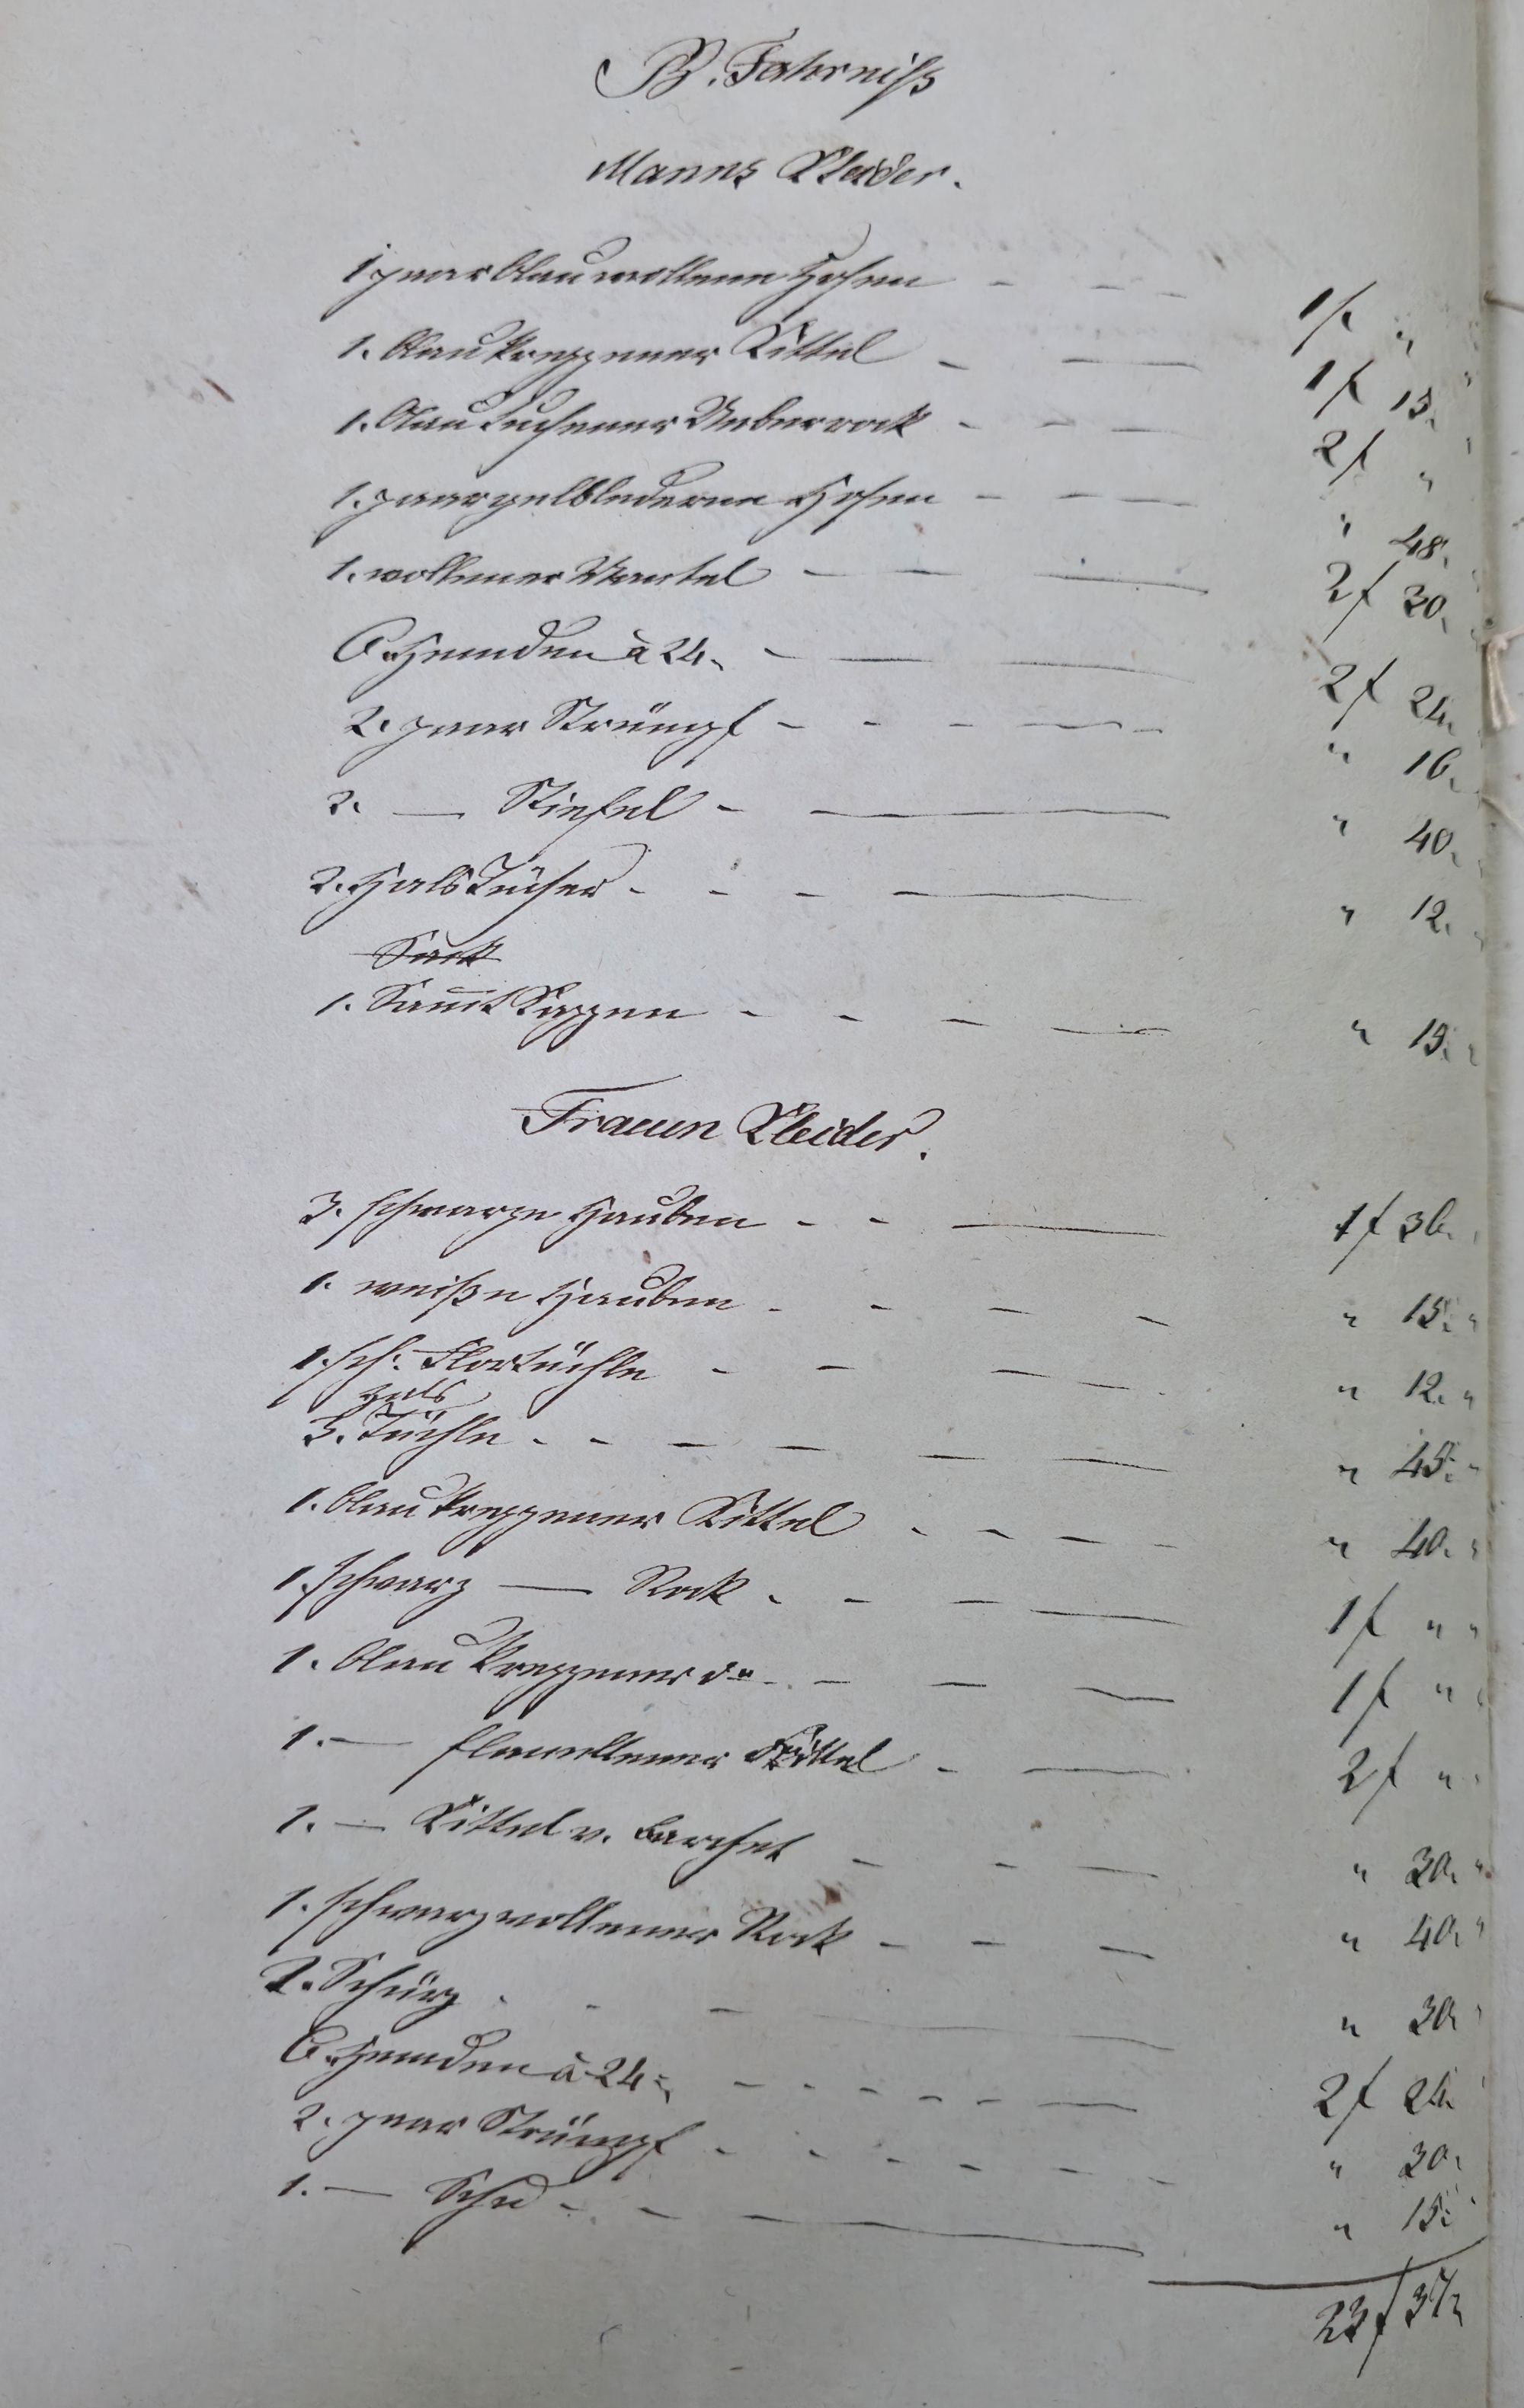 B. Fahrniß
Manns Kleider.
1 paar blau wollene Hosen - - - 1f. "
1. blau kreppener Kittel - - 1f 15.
1. blau Tuchener Ueberrock - - - 2f "
1. paar gelblederne Hosen - - - " 48.
1. wollener Mantel - - - 2f 30.
6. Hemden à 24. - - - 2f 24.
2. paar Strümpf - - - - - " 16.
2. — Stiefel - — " 40.
2. Hals Tücher - - - — " 12.
Sack
1. Samt Kappen - - - — " 15.
Frauen Kleider.
3. schwarze Hauben - - — 1f 36.
1. weiße Hauben - - - - " 15.
1. sch. Flortüchle - - - - " 12. "
Hals
3. Tüchle - - - - - - " 45. "
1. blau kreppener Kittel - - - - " 40. "
1. schwarz — Rock - - - — 1f " "
1. blau kreppener do - - - - 1f "
1. — flanellener Kittel - — 2f "
1. — Kittel v. Barchet - - - " 30. "
1. schwarz wollener Rock - - - " 40. "
2. Schürz - - - — " 30.
6. Hemden à 24. - - - - - - 2f 24.
2. paar Strümpf - - - - - - " 30.
1. — Schu - - — " 15.
23f 37.